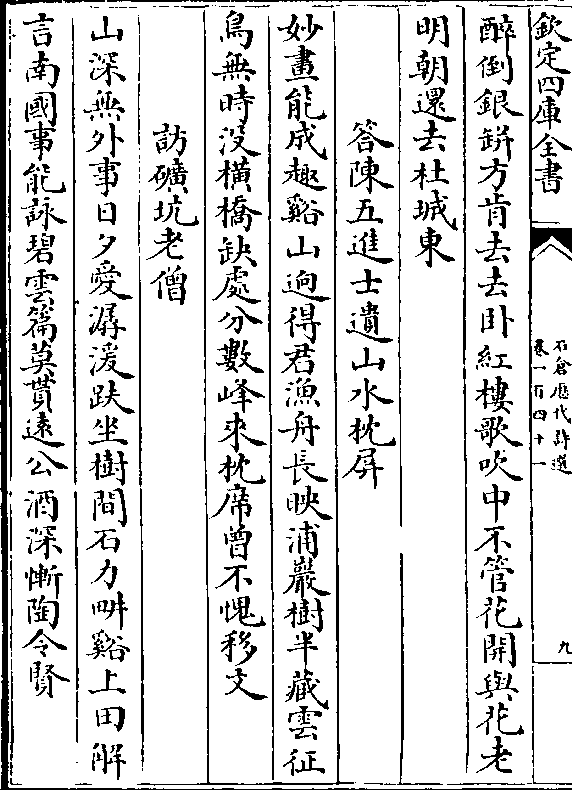 欽定四庫全書
石倉歷代詩選
卷一百四十一
九
醉倒銀缾方肯去去卧紅樓歌吹中不管花開與花老
明朝還去杜城東
答陳五進士遺山水枕屏
妙畫能成趣谿山迥得君漁舟長映浦巖樹半藏雲征
鳥無時没橫橋缺處分數峰來枕席曽不愧移文
訪礦坑老僧
山深無外事日夕愛潺湲趺坐樹間石力畊谿上田解
言南國事能詠碧雲篇莫貰遠公酒深慚陶令賢